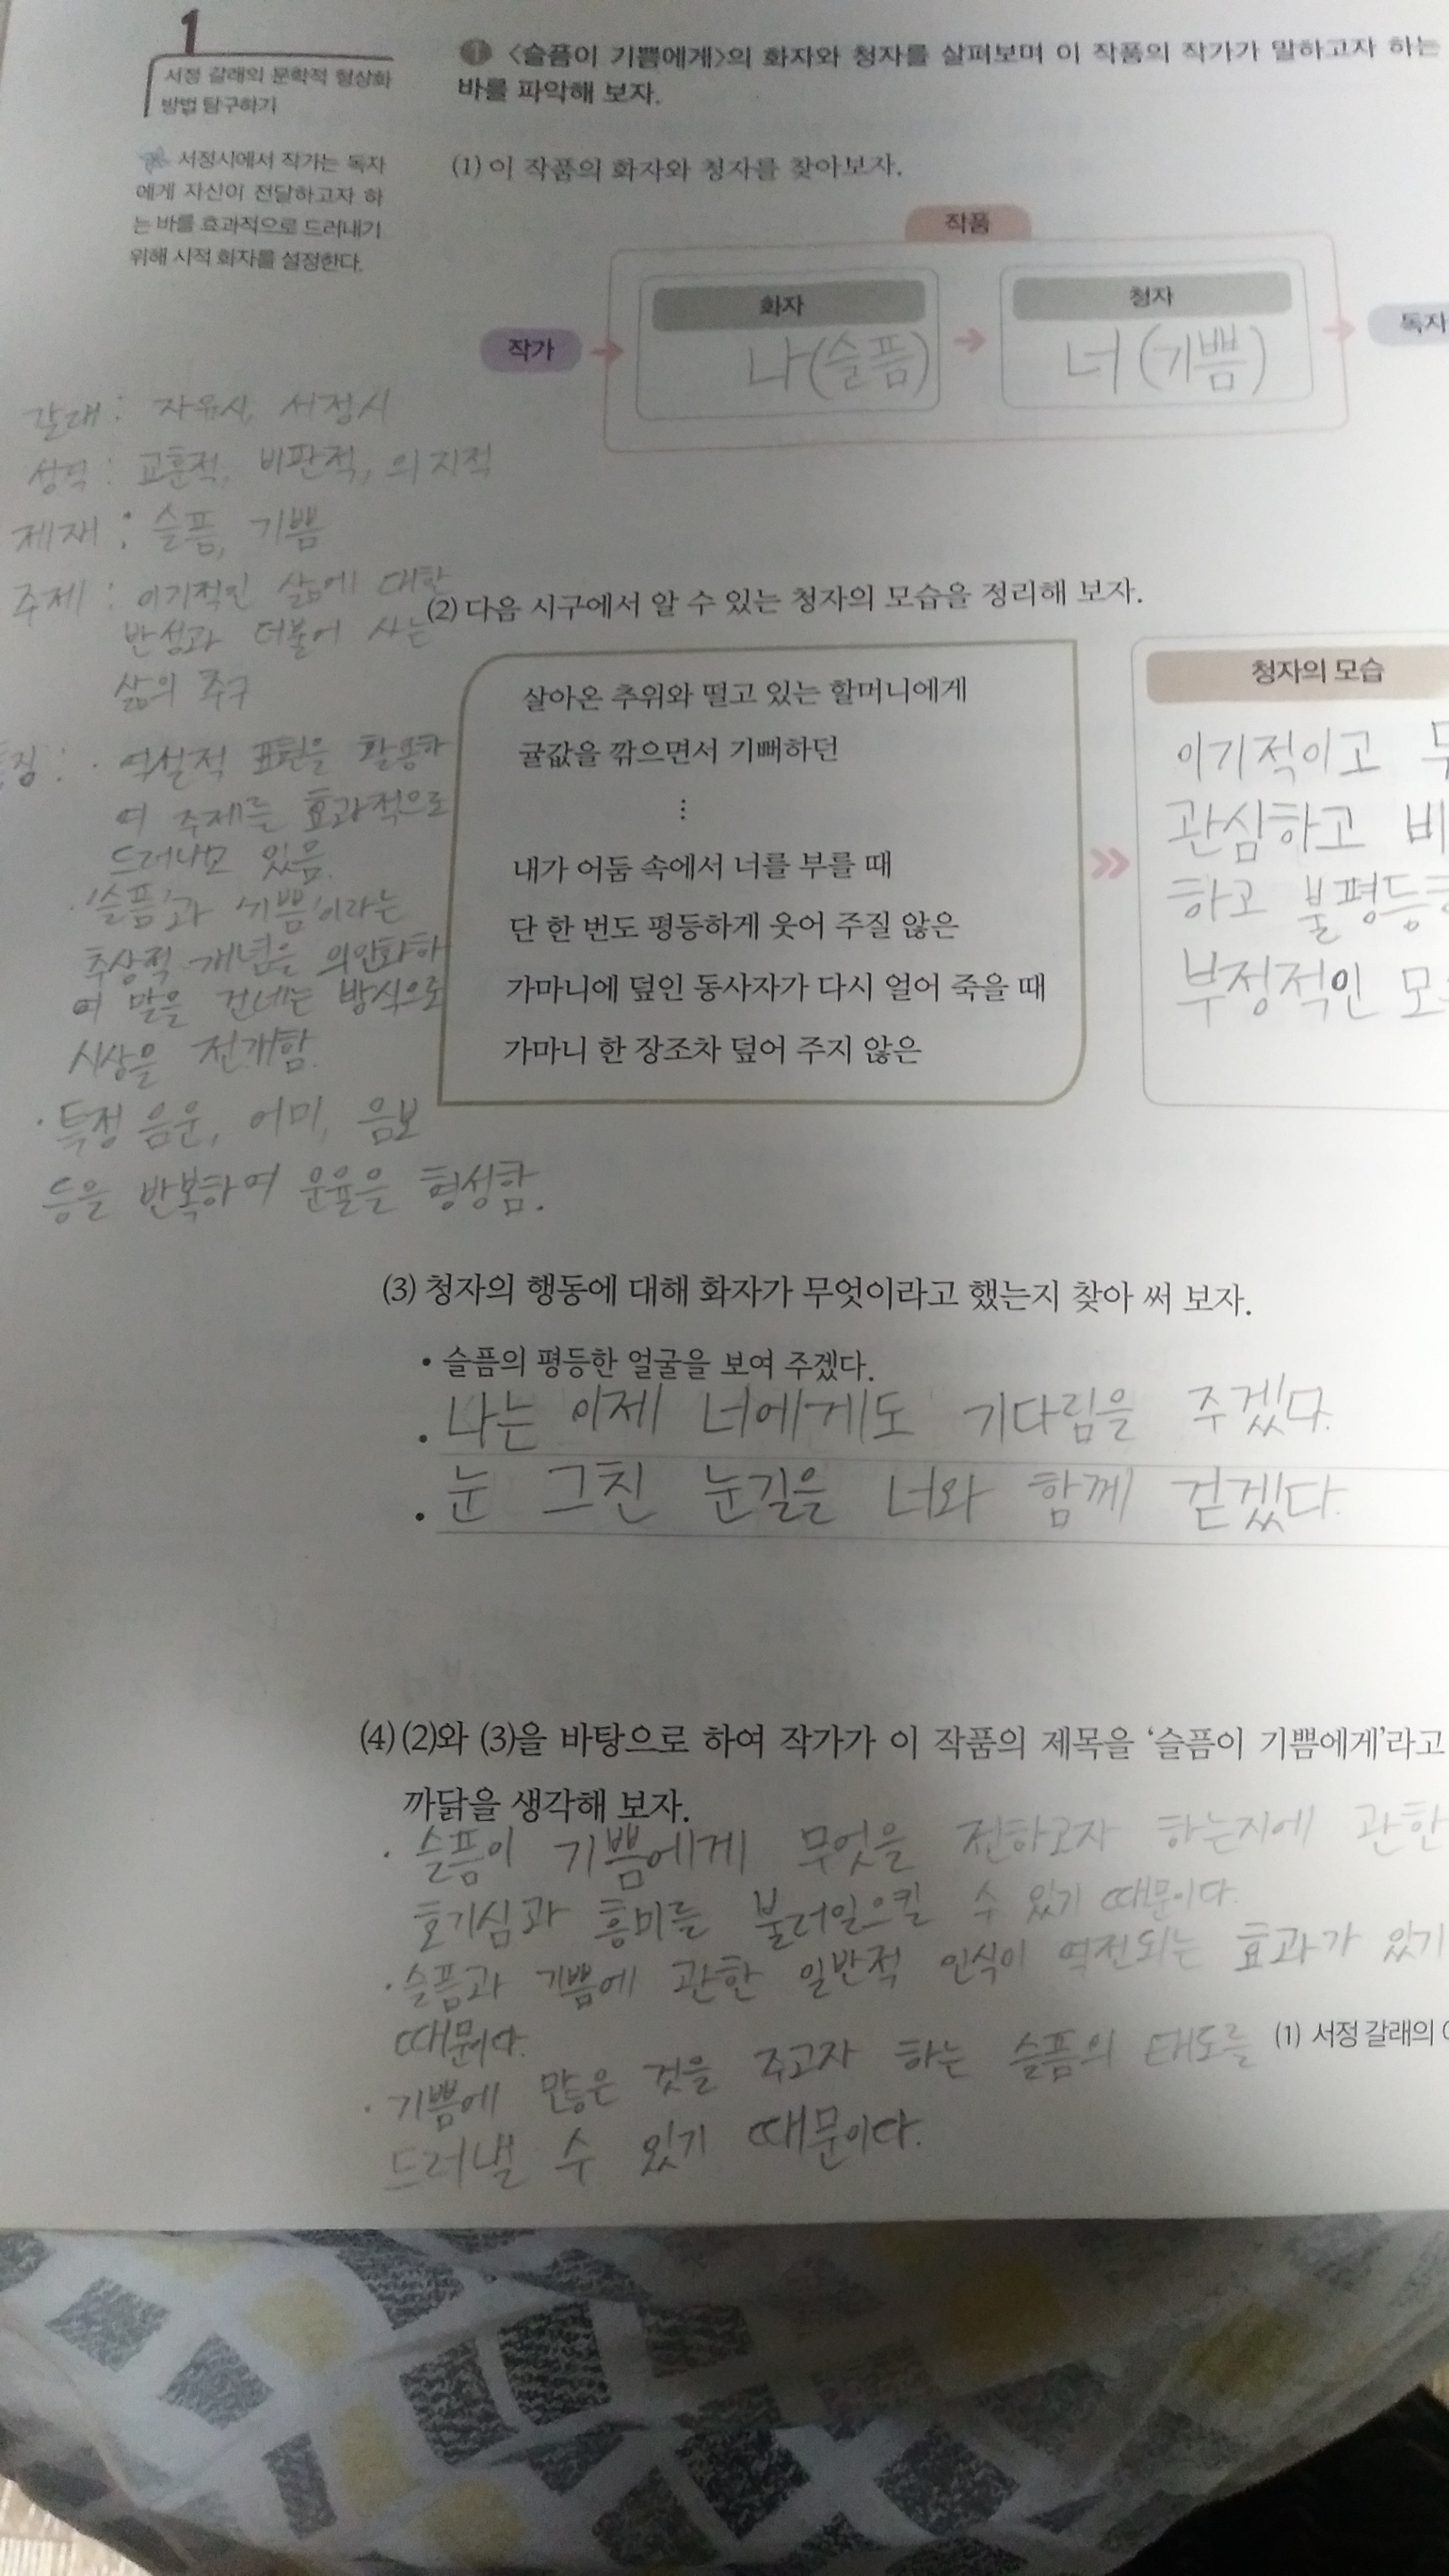 1
서정 갈래의 문학적 형상화
방법 탐구하기
서정시에서 작가는 독자
에게 자신이 전달하고자 하
는 바를 효과적으로 드러내기
위해 시적 화자를 설정한다.
1 〈슬픔이 기쁨에게〉의 화자와 청자를 살펴보며 이 작품의 작가가 말하고자 하는
바를 파악해 보자.
(1) 이 작품의 화자와 청자를 찾아보자.
작품
작가
화자
나(슬픔)
청자
너(기쁨)
독자
갈래 : 자유시, 서정시
성격 : 교훈적, 비판적, 의지적
제재 : 슬픔, 기쁨
주제 : 이기적인 삶에 대한
반성과 더불어 사는
삶의 추구
징 : · 역설적 표현을 활용하
여 주제를 효과적으로
드러내고 있음.
· '슬픔'과 '기쁨'이라는
추상적 개념을 의인화하
여 말을 건네는 방식으로
시상을 전개함.
· 특정 음운, 어미, 음보
등을 반복하여 운율을 형성함.
(2) 다음 시구에서 알 수 있는 청자의 모습을 정리해 보자.
살아온 추위와 떨고 있는 할머니에게
귤값을 깎으면서 기뻐하던
⋮
내가 어둠 속에서 너를 부를 때
단 한 번도 평등하게 웃어 주질 않은
가마니에 덮인 동사자가 다시 얼어 죽을 때
가마니 한 장조차 덮어 주지 않은
청자의 모습
이기적이고 무
관심하고 비
하고 불평등한
부정적인 모
(3) 청자의 행동에 대해 화자가 무엇이라고 했는지 찾아 써 보자.
• 슬픔의 평등한 얼굴을 보여 주겠다.
• 나는 이제 너에게도 기다림을 주겠다.
• 눈 그친 눈길을 너와 함께 걷겠다.
(4) (2)와 (3)을 바탕으로 하여 작가가 이 작품의 제목을 '슬픔이 기쁨에게'라고
까닭을 생각해 보자.
· 슬픔이 기쁨에게 무엇을 전하고자 하는지에 관한
호기심과 흥미를 불러일으킬 수 있기 때문이다.
· 슬픔과 기쁨에 관한 일반적 인식이 역전되는 효과가 있기
때문이다.
· 기쁨에 많은 것을 주고자 하는 슬픔의 태도를
드러낼 수 있기 때문이다.
(1) 서정 갈래의